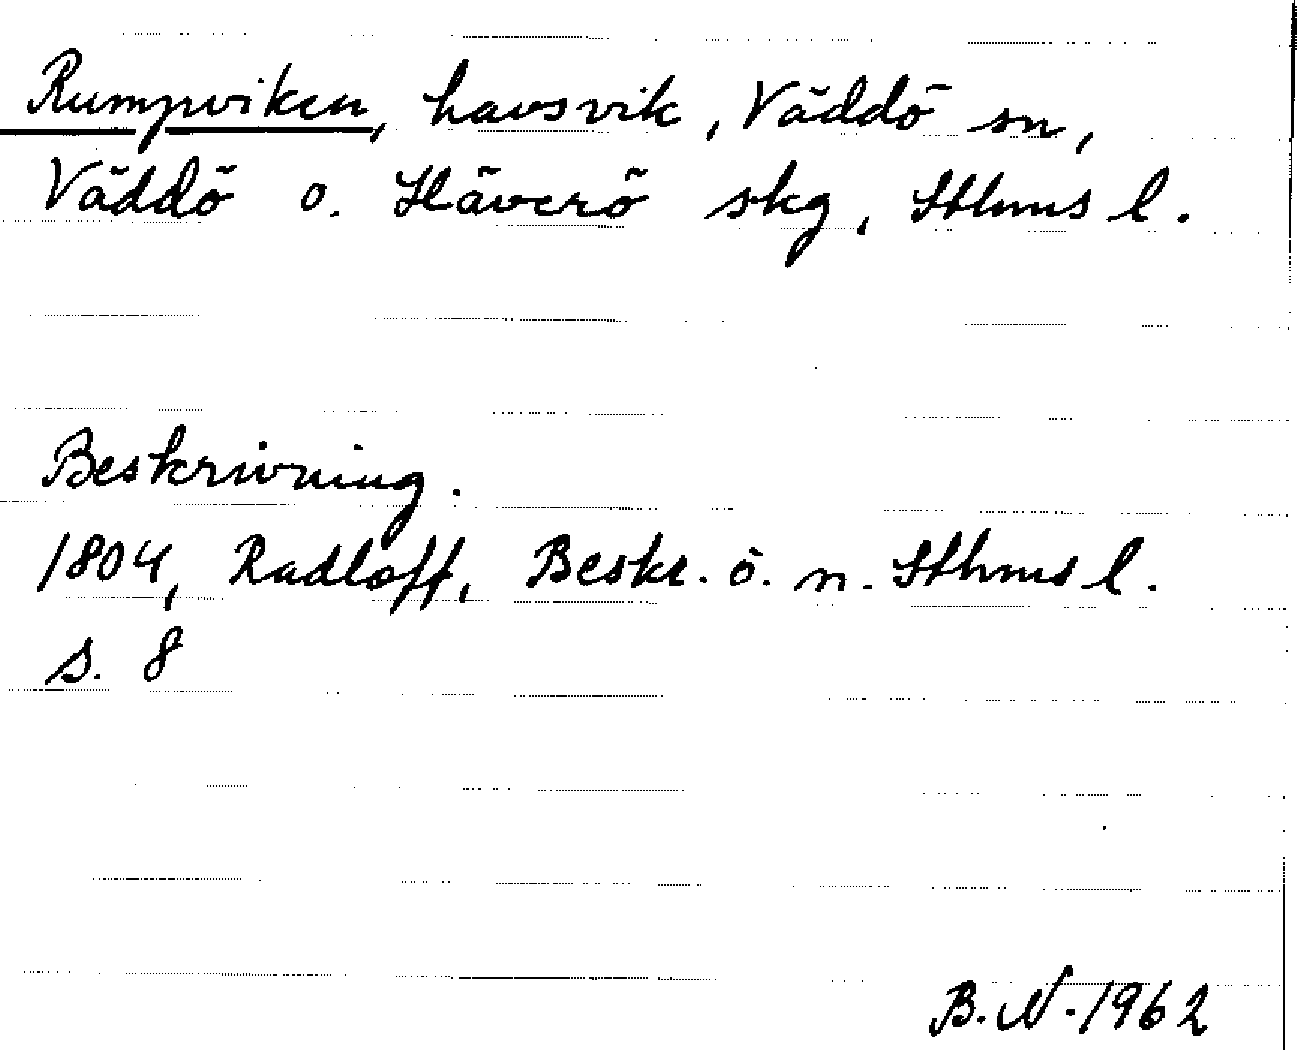 Rumpviken, havsvik, Väddö sn,
Väddö o. Häverö skg, Sthms l.
Beskrivning.
1804, Radloff, Beskr. ö. n. Sthms l.
s. 8
B. N. 1962